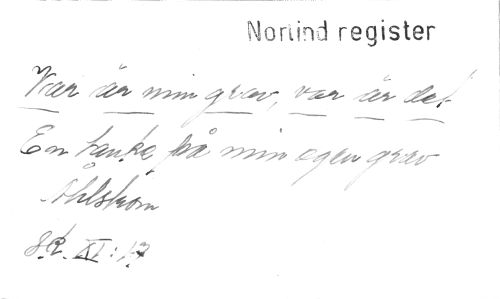 Norlind register
Var är min grav, var är det
En tanke på min egen grav
Ahlström
Sk. XI: 17